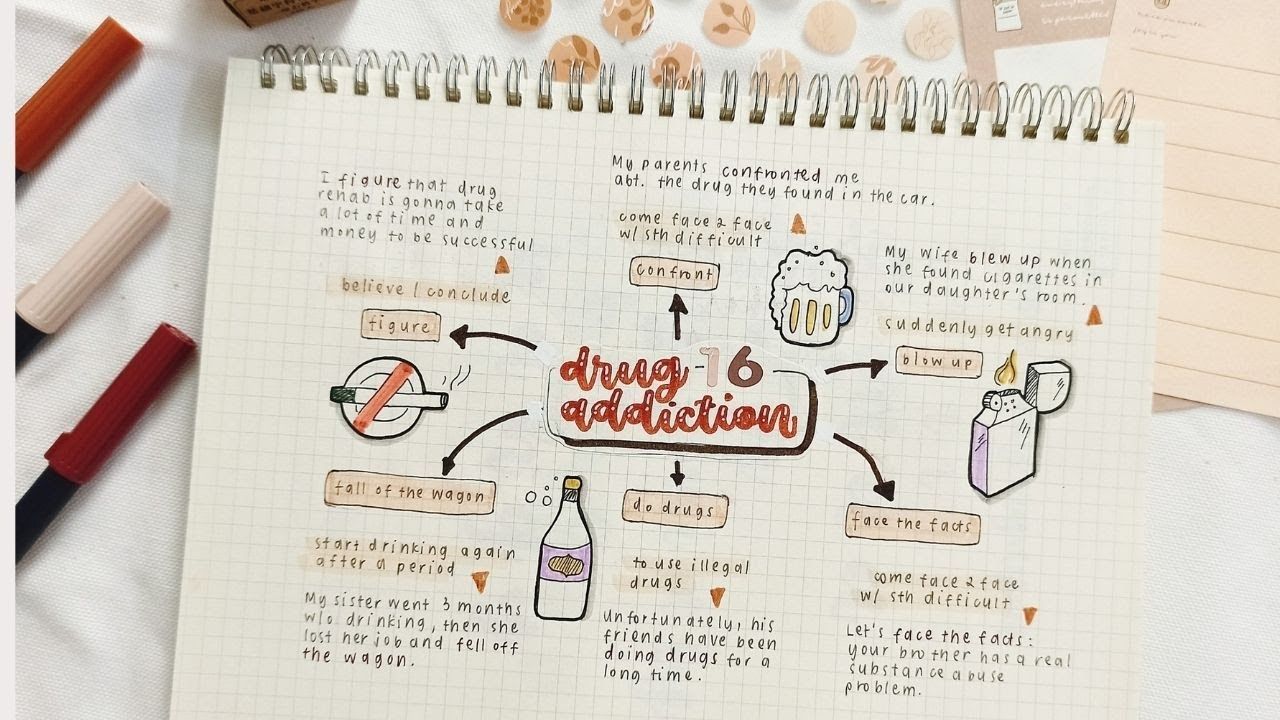 My parents confronted me
abt. the drug they found in the car.
come face 2 face
w/ sth difficult
confront
I figure that drug
rehab is gonna take
a lot of time and
money to be successful
believe / conclude
figure
My wife blew up when
she found cigarettes in
our daughter's room.
suddenly get angry
blow up
drug -16
addiction
fall of the wagon
start drinking again
after a period
My sister went 3 months
w/o drinking, then she
lost her job and fell off
the wagon.
do drugs
to use illegal
drugs
Unfortunately, his
friends have been
doing drugs for a
long time.
face the facts
come face 2 face
w/ sth difficult
Let's face the facts:
your brother has a real
substance abuse
problem.